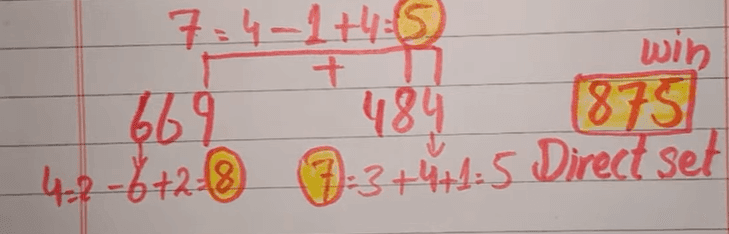 7=4-1+4=5
+
win
669 484 875
4=2-6+2=8 7=3+4+1=5 Direct set